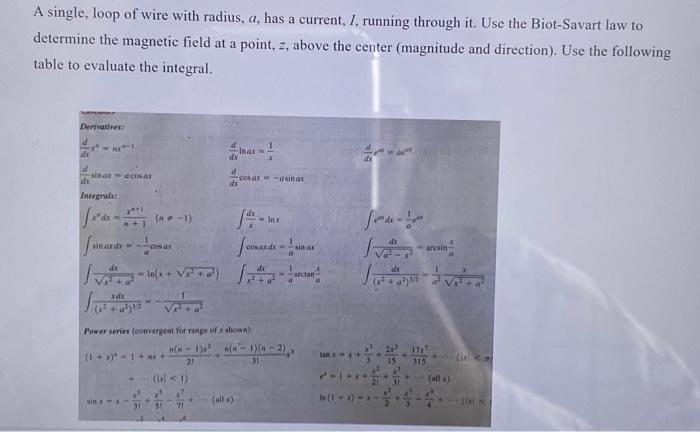 A single, loop of wire with radius, a, has a current, I, running through it. Use the Biot-Savart law to
determine the magnetic field at a point, z, above the center (magnitude and direction). Use the following
table to evaluate the integral.
Derivatives:
d/dx xⁿ = nxⁿ⁻¹ d/dx ln ax = 1/x d/dx eᵃˣ = aeᵃˣ
d/dx sin ax = a cos ax d/dx cos ax = -a sin ax
Integrals:
∫ xⁿ dx = xⁿ⁺¹/(n + 1) (n ≠ -1) ∫ dx/x = ln x ∫ eᵃˣ dx = 1/a eᵃˣ
∫ sin ax dx = -1/a cos ax ∫ cos ax dx = 1/a sin ax ∫ dx/√(a² - x²) = arcsin x/a
∫ dx/√(x² + a²) = ln(x + √(x² + a²)) ∫ dx/(x² + a²) = 1/a arctan x/a ∫ dx/(x² + a²)^(3/2) = 1/a² x/√(x² + a²)
∫ x dx/(x² + a²)^(3/2) = -1/√(x² + a²)
Power series (convergent for range of x shown):
(1 + x)ⁿ = 1 + nx + n(n - 1)x²/2! + n(n - 1)(n - 2)/3! x³ tan x = x + x³/3 + 2x⁵/15 + 17x⁷/315 + ··· (|x| <
+ ··· (|x| < 1) eˣ = 1 + x + x²/2! + x³/3! + ··· (all x)
sin x = x - x³/3! + x⁵/5! - x⁷/7! + ··· (all x) ln(1 + x) = x - x²/2 + x³/3 - x⁴/4 + ··· (|x| <